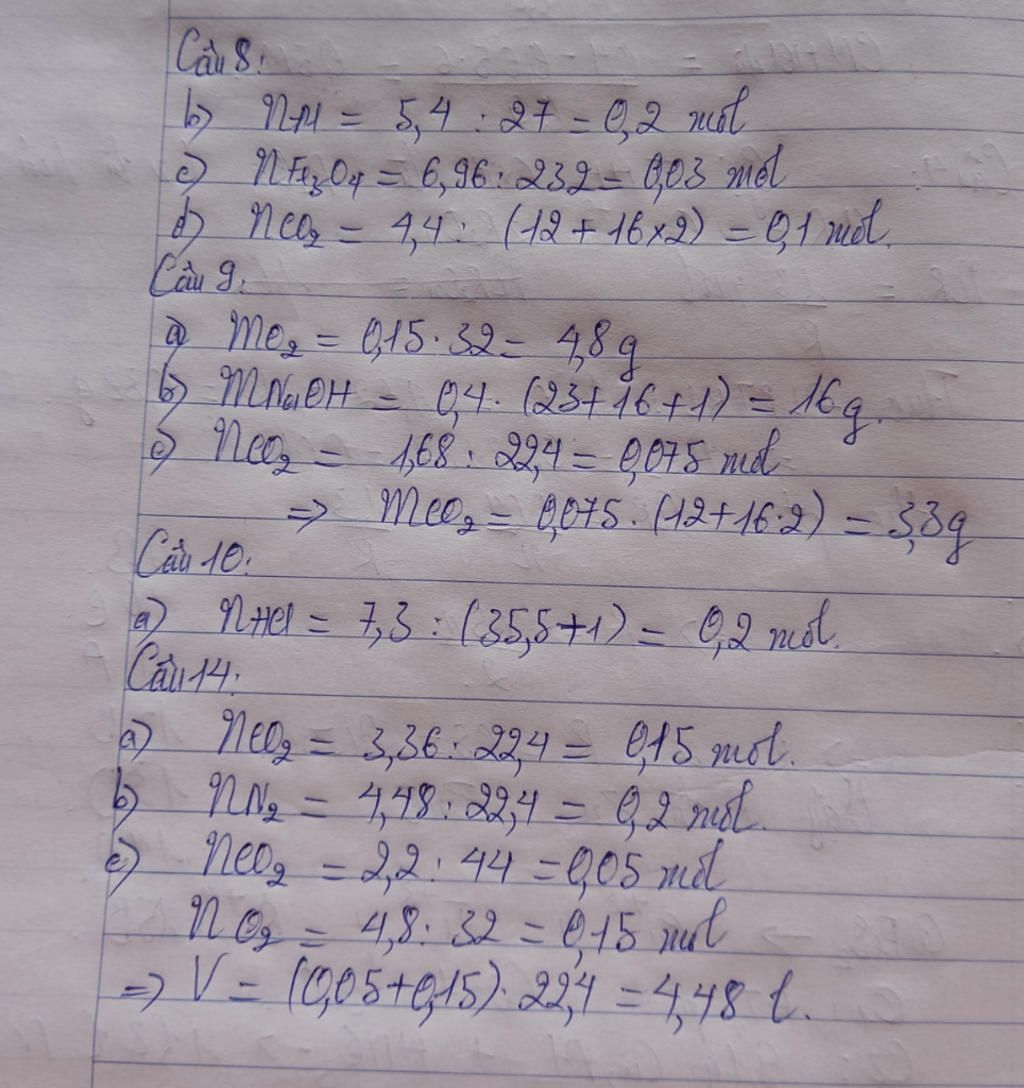 Câu 8:
b) nAl = 5,4 : 27 = 0,2 mol
c) nFe₃O₄ = 6,96 : 232 = 0,03 mol
d) nCO₂ = 4,4 : (12 + 16×2) = 0,1 mol.
Câu 9:
a) mO₂ = 0,15 . 32 = 4,8 g
b) mNaOH = 0,4 . (23+16+1) = 16 g.
c) nCO₂ = 1,68 : 22,4 = 0,075 mol
=> mCO₂ = 0,075 . (12+16.2) = 3,3g
Câu 10:
a) nHCl = 7,3 : (35,5+1) = 0,2 mol.
Câu 14:
a) nCO₂ = 3,36 : 22,4 = 0,15 mol.
b) nN₂ = 4,48 : 22,4 = 0,2 mol.
c) nCO₂ = 2,2 : 44 = 0,05 mol
nO₂ = 4,8 : 32 = 0,15 mol
=> V = (0,05+0,15) . 22,4 = 4,48 l.